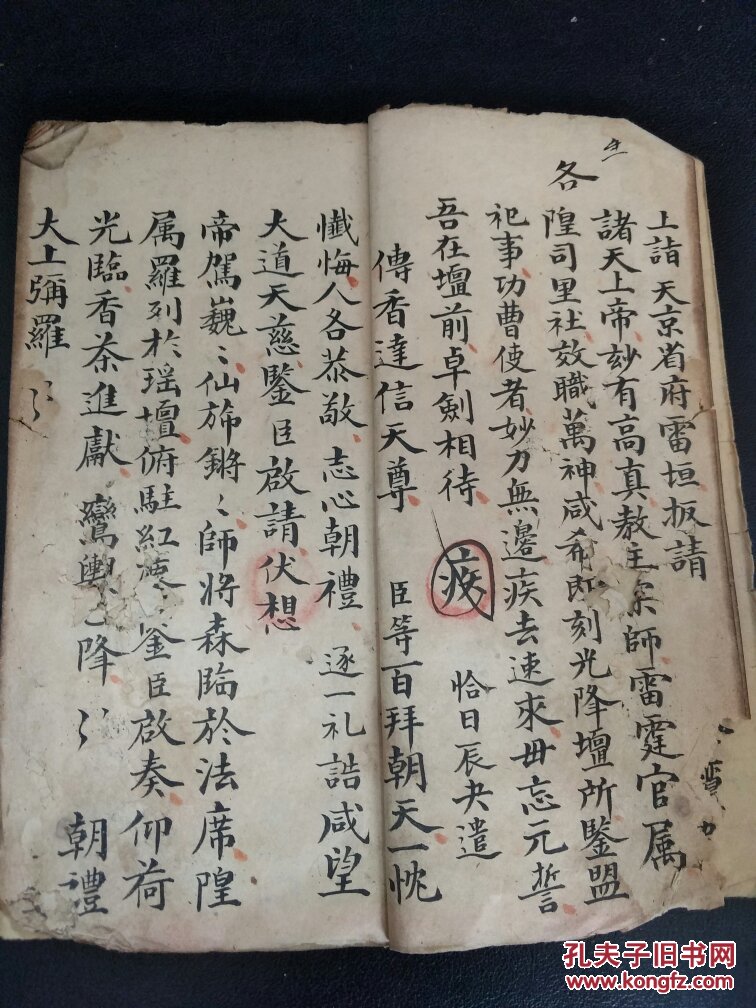 上詣天京省府雷垣扳請
諸天上帝玅有高真教主宗師雷霆官属
各
隍司里社效職萬神咸希即刻光降壇所鑒盟
祀事功曹使者妙力無邊疾去速來毋忘元誓
吾在壇前卓劍相待 疾 恰日辰夬遣
傳香達信天尊 臣等一百拜朝天一忱
懺悔人各恭敬志心朝禮 逐一礼誥咸望
大道天慈鑒臣啟請伏想
帝駕巍〻仙旆鏘〻師將森臨於法席隍
属羅列於瑶壇俯駐紅 鉴臣啟奏仰荷
光臨香茶進獻鸞輿 降〻 朝禮
大上彌羅〻
孔夫子旧书网
www.kongfz.com